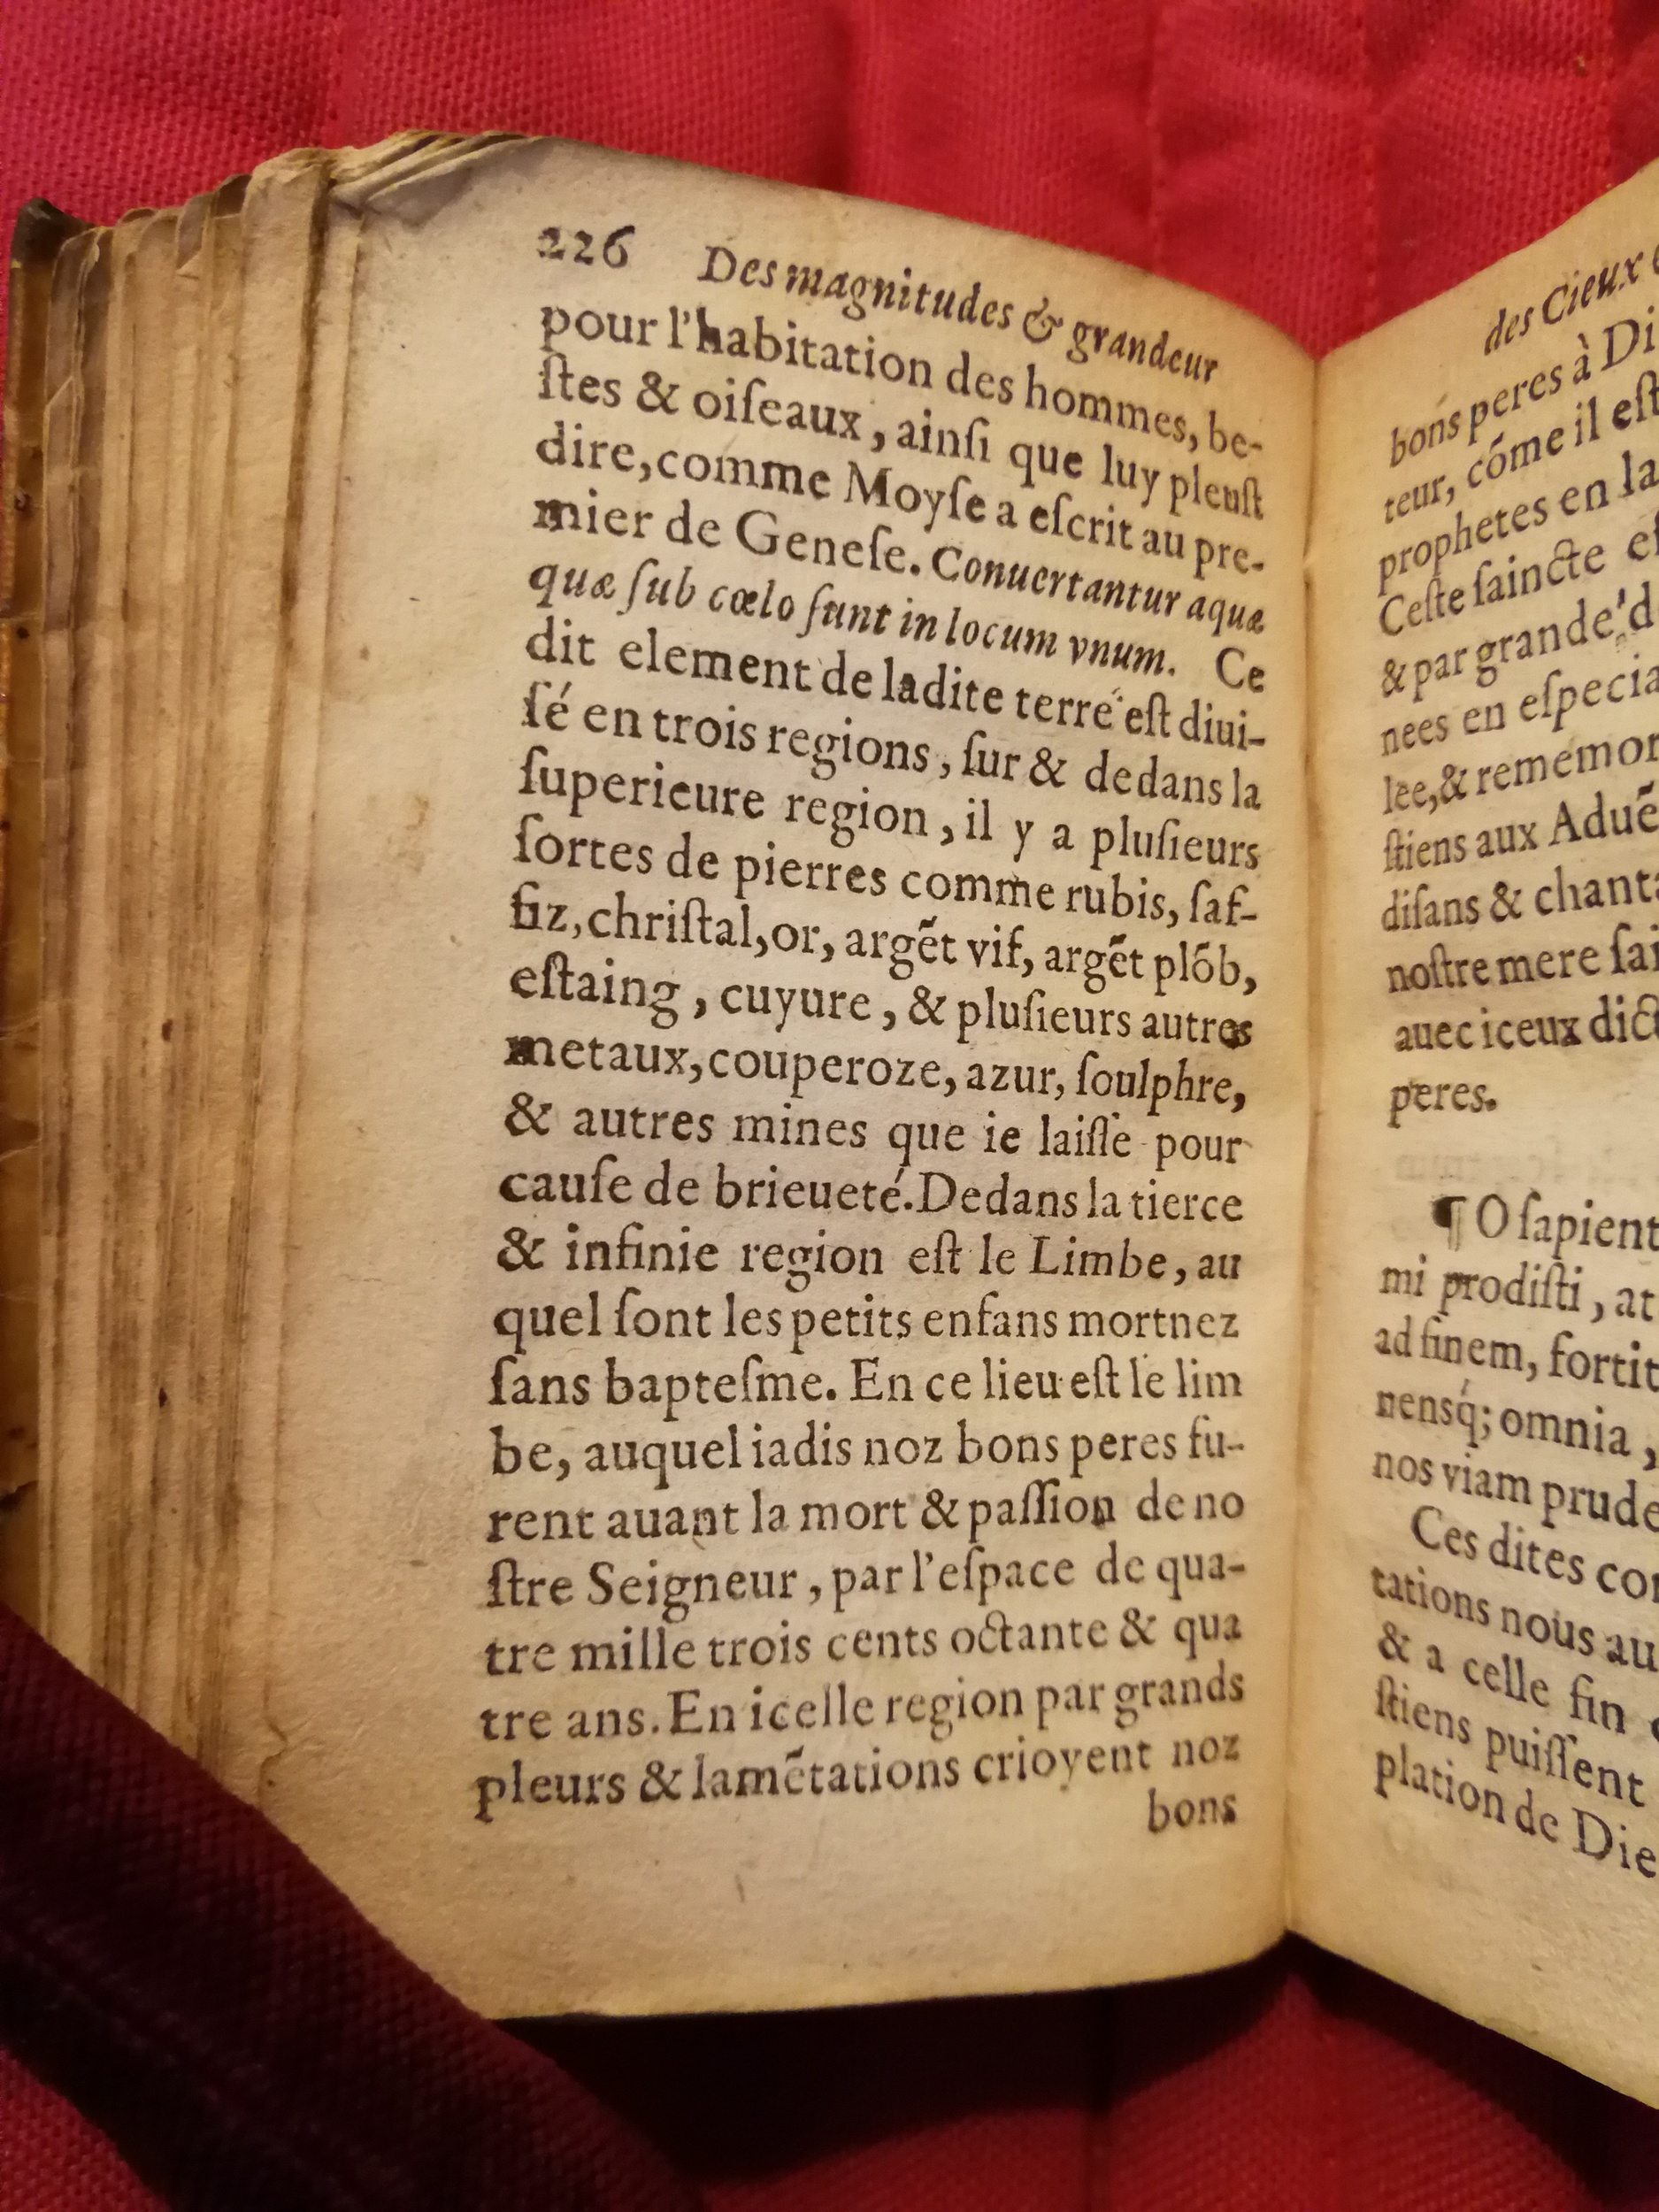 226 Des magnitudes & grandeur
pour l'habitation des hommes, be-
ſtes & oiſeaux, ainſi que luy pleuſt
dire, comme Moyſe a eſcrit au pre-
mier de Geneſe. Conuertantur aquæ
quæ ſub cœlo ſunt in locum vnum. Ce
dit element de ladite terre eſt diui-
ſé en trois regions, ſur & dedans la
ſuperieure region, il y a pluſieurs
ſortes de pierres comme rubis, ſaf-
fiz, chriſtal, or, argẽt vif, argẽt plõb,
eſtaing, cuyure, & pluſieurs autres
metaux, couperoze, azur, ſoulphre,
& autres mines que ie laiſſe pour
cauſe de brieueté. Dedans la tierce
& infinie region eſt le Limbe, au
quel ſont les petits enfans mortnez
ſans bapteſme. En ce lieu eſt le lim
be, auquel iadis noz bons peres fu-
rent auant la mort & paſſion de no
ſtre Seigneur, par l'eſpace de qua-
tre mille trois cents octante & qua
tre ans. En icelle region par grands
pleurs & lamẽtations crioyent noz
bons
des Cieux
bons peres à Di
teur, cõme il eſt
prophetes en la
Ceſte ſaincte eſ
& par grande d
nees en eſpecia
lee, & rememor
ſtiens aux Aduẽ
diſans & chanta
noſtre mere ſai
auec iceux dict
peres.
¶ O ſapient
mi prodiſti, at
ad finem, fortit
nensq́; omnia,
nos viam prude
Ces dites con
tations nous au
& a celle fin
ſtiens puiſſent
plation de Die